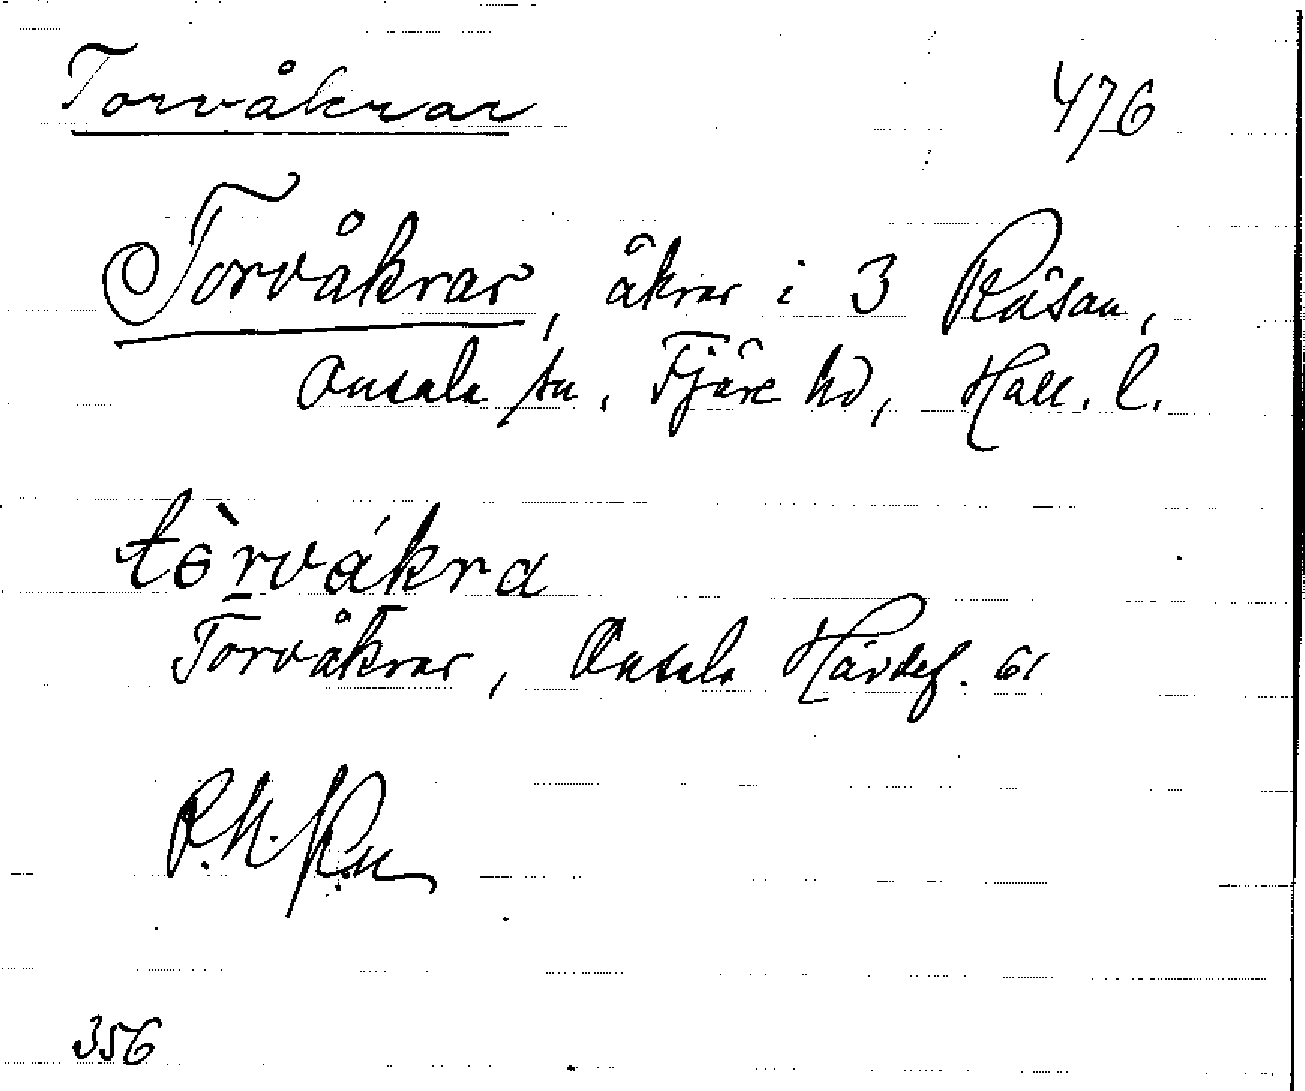 Torvåkrar 476
Torvåkrar, åkrar i 3 Råsan,
Onsala sn. Fjäre hd, Hall. l.
tòrvákra
Torvåkrar, Onsala Hävdef. 61
356